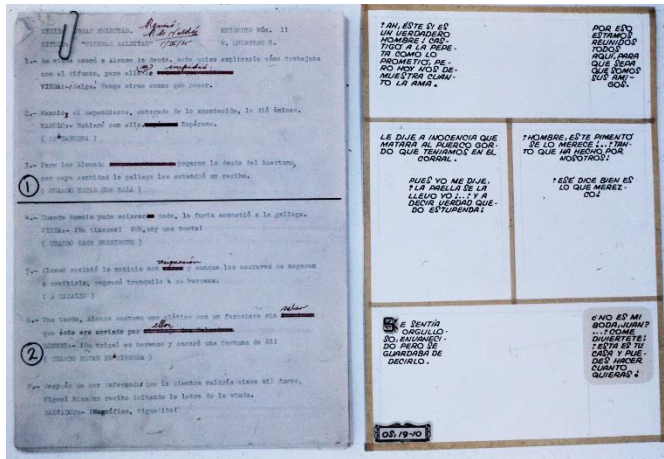 EPISODIO NÚM. 11
"PIERNAS SALDITAS"
B. QUINTERO C.
1.- La viuda cobró a Alonso la deuda, este quiso explicarle cómo trabajaba
con el difunto, pero ella lo impidió.
VIUDA:-¡Salga! Tengo otras cosas qué hacer.
2.- Manolo, el dependiente, enterado de lo acontecido, le dió ánimos.
MANOLO:- Hablaré con ella. Espérame.
3.- Pero los Alonso pagaron la deuda del huertano,
por cuya cantidad la gallega les extendió un recibo.
1
4.- Cuando Ramón pudo aclarar todo, la furia acometió a la gallega.
VIUDA:- ¡Me timaron! ¡Oh, soy una tonta!
5.- Alonso recibió la noticia con y aunque los usureros se negaron
a recibirle, regresó tranquilo a su barraca.
( A CABALLO )
6.- Una tarde, Alonso sostuvo una plática con un forastero sin saber
que éste era enviado por ellos
¡Su trigal es hermoso y sacará una fortuna de él!
2
7.- Después de ser informado que la siembra valdría cinco mil duros,
Miguel hizo un recibo imitando la letra de la viuda.
¡Magnífico, Miguelito!
! AH, ÉSTE SI ES
UN VERDADERO
HOMBRE ¡ CAS-
TIGÓ A LA PEPE-
TA COMO LO
PROMETIÓ, PE-
RO HOY NOS DE-
MUESTRA CUAN-
TO LA AMA.
POR ESO
ESTAMOS
REUNIDOS
TODOS
AQUÍ, PARA
QUE SEPA
QUE SOMOS
SUS AMI-
GOS.
LE DIJE A INOCENCIA QUE
MATARA AL PUERCO GOR-
DO QUE TENIAMOS EN EL
CORRAL.
PUES YO ME DIJE.
! LA PAELLA SE LA
LLEVO YO ¡..! Y A
DECIR VERDAD QUE-
DO ESTUPENDA ¡
! HOMBRE, ESTE PIMENTÓ
SE LO MERECE ¡..! TAN-
TO QUE HA HECHO POR
NOSOTROS ¡
! ESÉ DICE BIEN ES
LO QUE MEREZ-
CO ¡
SE SENTÍA
ORGULLO-
SO, ENVANECI-
DO PERO SE
GUARDABA DE
DECIRLO.
¿NO ES MI
BODA, JUAN?
¡...! COME
DIVIERTETE ¡
! ESTA ES TU
CASA Y PUE-
DES HACER
CUANTO
QUIERAS ¡
OS, 19-10